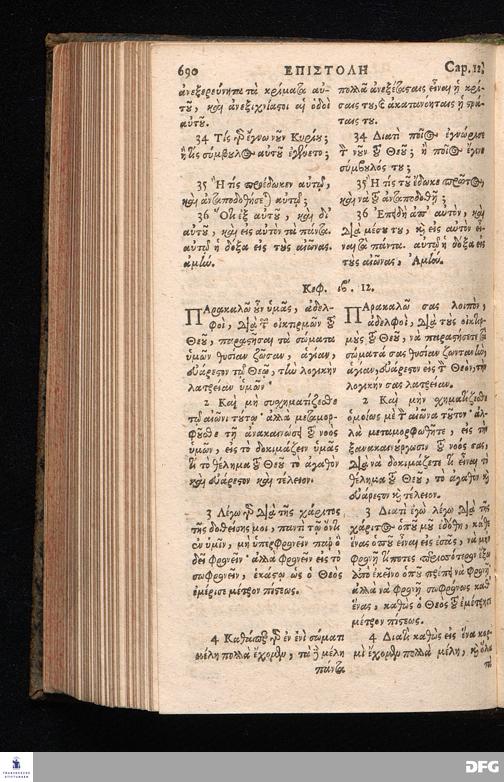 690 ΕΠΙΣΤΟΛΗ Cap. 12.
ἀνεξερεύνητα τὰ κρίματα αὐ-
τῦ, καὶ ἀνεξιχνίαστοι αἱ ὁδοὶ
αὐτῦ.
34 Τίς γὰρ ἔγνω νῦν Κυρίου;
ἢ τίς σύμβουλος αὐτῦ ἐγένετο;
35 Ἢ τίς προέδωκεν αὐτῷ,
καὶ ἀνταποδοθήσεται αὐτῷ;
36 Ὅτι ἐξ αὐτῦ, καὶ δι'
αὐτῦ, καὶ εἰς αὐτὸν τὰ πάντα.
αὐτῷ ἡ δόξα εἰς τὺς αἰῶνας.
ἀμίω.
πολλὰ ἀνεξέταστες εἶναι ἡ κρί-
σαις τυ, ἀκατανόηταις ἡ στρά-
ταις τυ.
34 Διατὶ ποῖος ἐγνώρισε
τὸν νῦν τοῦ Θεῦ; ἢ ποῖος ἔγινε
σύμβυλός τυ;
35 Ἢ τίς τῦ ἔδωκε πρῶτος,
καὶ νὰ τοῦ ἀνταποδοθῇ;
36 Ἐπειδὴ ἀπ' αὐτὸν, καὶ
διὰ μέσυ τυ, καὶ εἰς αὐτὸν εἶ-
ναι τὰ πάντα. αὐτῦ ἡ δόξα εἰς
τὺς αἰῶνας, Ἀμίω.
Κεφ. ιβ'. 12.
ΠΑρακαλῶ ὖν ὑμᾶς, ἀδελ-
φοὶ, διὰ τῶν οἰκτιρμῶν τοῦ
Θεῦ, παραστῆσαι τὰ σώματα
ὑμῶν θυσίαν ζῶσαν, ἁγίαν,
εὐάρεστον τῷ Θεῷ, τὴν λογικὴν
λατρείαν ὑμῶν·
2 Καὶ μὴ συσχηματίζεσθε
τῷ αἰῶνι τύτῳ· ἀλλὰ μεταμορ-
φῦσθε τῇ ἀνακαινώσει τοῦ νοὸς
ὑμῶν, εἰς τὸ δοκιμάζειν ὑμᾶς
τί τὸ θέλημα τοῦ Θεῦ τὸ ἀγαθὸν
καὶ εὐάρεστον καὶ τέλειον.
3 Λέγω γὰρ διὰ τῆς χάριτος
τῆς δοθείσης μοι, παντὶ τῷ ὄντι
ἐν ὑμῖν, μὴ ὑπερφρονεῖν παρ' ὃ
δεῖ φρονεῖν· ἀλλὰ φρονεῖν εἰς τὸ
σωφρονεῖν, ἑκάστῳ ὡς ὁ Θεὸς
ἐμέρισε μέτρον πίστεως.
4 Καθάπερ γὰρ ἐν ἑνὶ σώματι
μέλη πολλὰ ἔχομεν, τὰ δὲ μέλη
πάντα
ΠΑρακαλῶ σας λοιπὸν,
ἀδελφοὶ, διὰ τὺς οἰκτιρ-
μὺς τοῦ Θεῦ, νὰ παραστήσετε τὰ
σώματά σας θυσίαν ζωντανὴν,
ἁγίαν, εὐάρεστον εἰς τὸν Θεὸν, τὴν
λογικήν σας λατρείαν.
2 Καὶ μὴν σχηματίζεσθε
ὁμοίως μὲ τὸν αἰῶνα τῦτον· ἀλ-
λὰ μεταμορφωθῆτε, εἰς τὴν
ξανακαινύργωσιν τοῦ νοός σας,
διὰ νὰ δοκιμάζετε τί εἶναι τὸ
θέλημα τοῦ Θεῦ, τὸ ἀγαθὸν καὶ
εὐάρεστον καὶ τέλειον.
3 Διατὶ ἐγὼ λέγω διὰ τῆς
χάριτος ὁπῦ μυ ἐδόθη, καθ'
ἕνας ὁπῦ εἶναι εἰς ἐσᾶς, νὰ μὴν
φρονῇ τίποτες περισσότερον ἔξω
ἀπὸ ἐκεῖνο ὁπῦ πρέπῃ νὰ φρονῇ,
ἀλλὰ νὰ φρονῇ σωφρόνως καθ'
ἕνας, καθὼς ὁ Θεὸς τοῦ ἐμέτρησε
μέτρον πίστεως.
4 Διατὶ καθὼς εἰς ἕνα κορ-
μὶ ἔχομεν πολλὰ μέλη, καὶ ὅλα
τὰ
DFG